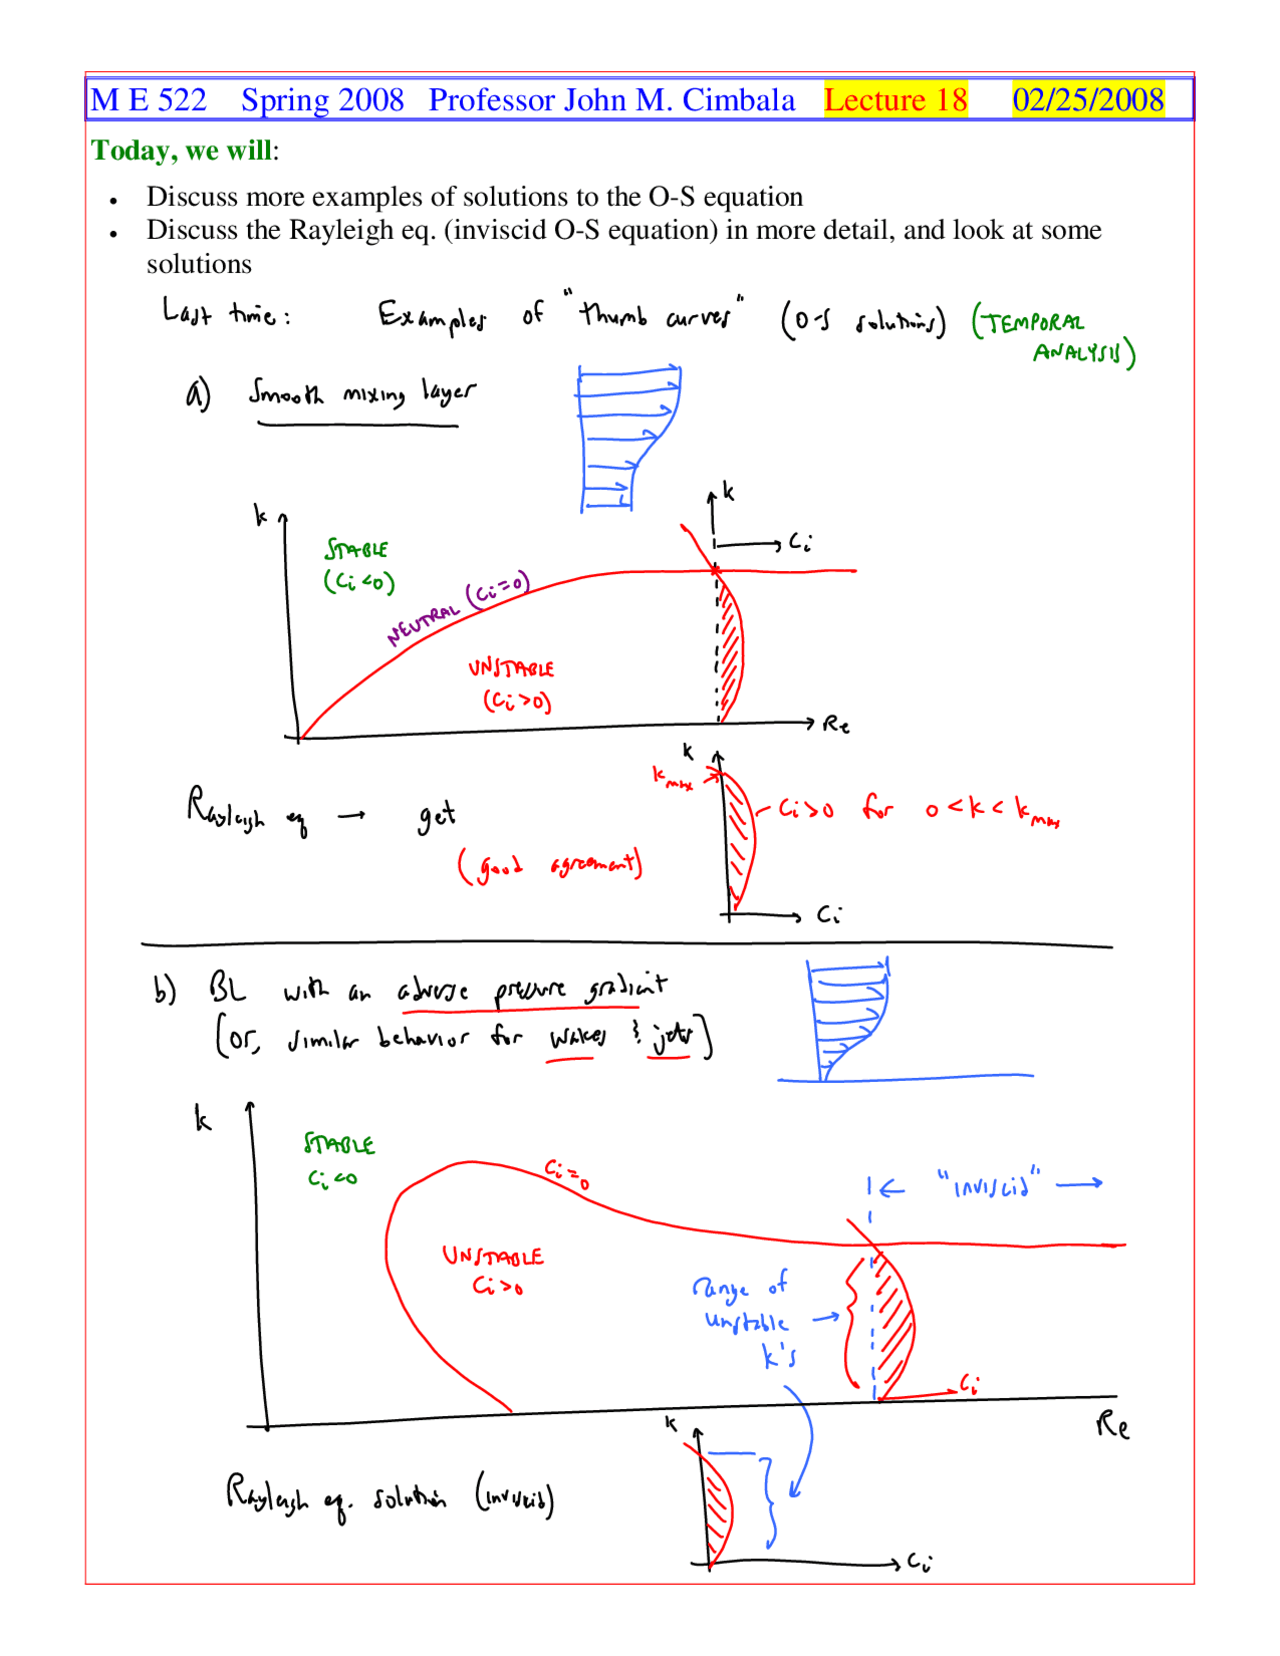 M E 522 Spring 2008 Professor John M. Cimbala Lecture 18 02/25/2008
Today, we will:
• Discuss more examples of solutions to the O-S equation
• Discuss the Rayleigh eq. (inviscid O-S equation) in more detail, and look at some
solutions
Last time: Examples of "thumb curves" (O-S solutions) (TEMPORAL
ANALYSIS)
a) Smooth mixing layer
k
k
STABLE
(Ci<0)
Ci
NEUTRAL (Ci=0)
UNSTABLE
(Ci>0)
Re
k
kmax
Rayleigh eq → get
Ci>0 for 0<k<kmax
(good agreement)
Ci
b) BL with an adverse pressure gradient
(or, similar behavior for wakes & jets)
k
STABLE
Ci<0
Ci=0
"inviscid"
UNSTABLE
Ci>0
range of
unstable
k's
Ci
Re
k
Rayleigh eq. solution (inviscid)
Ci